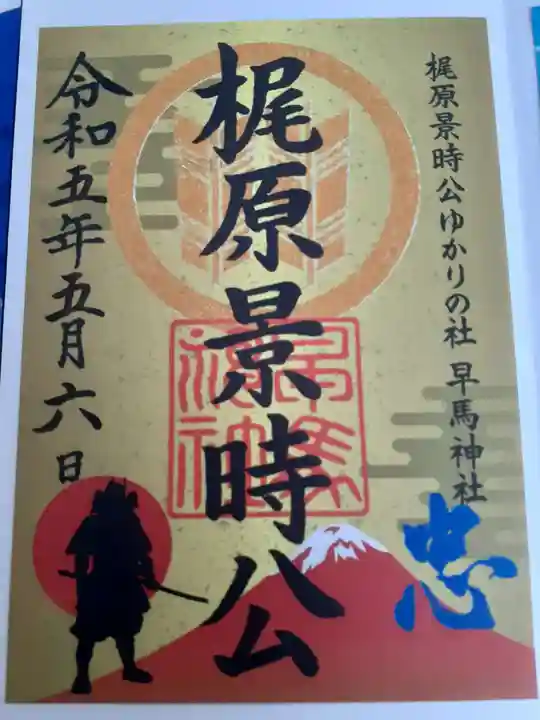 梶原景時公ゆかりの社 早馬神社
梶原景時公
令和五年五月六日
忠